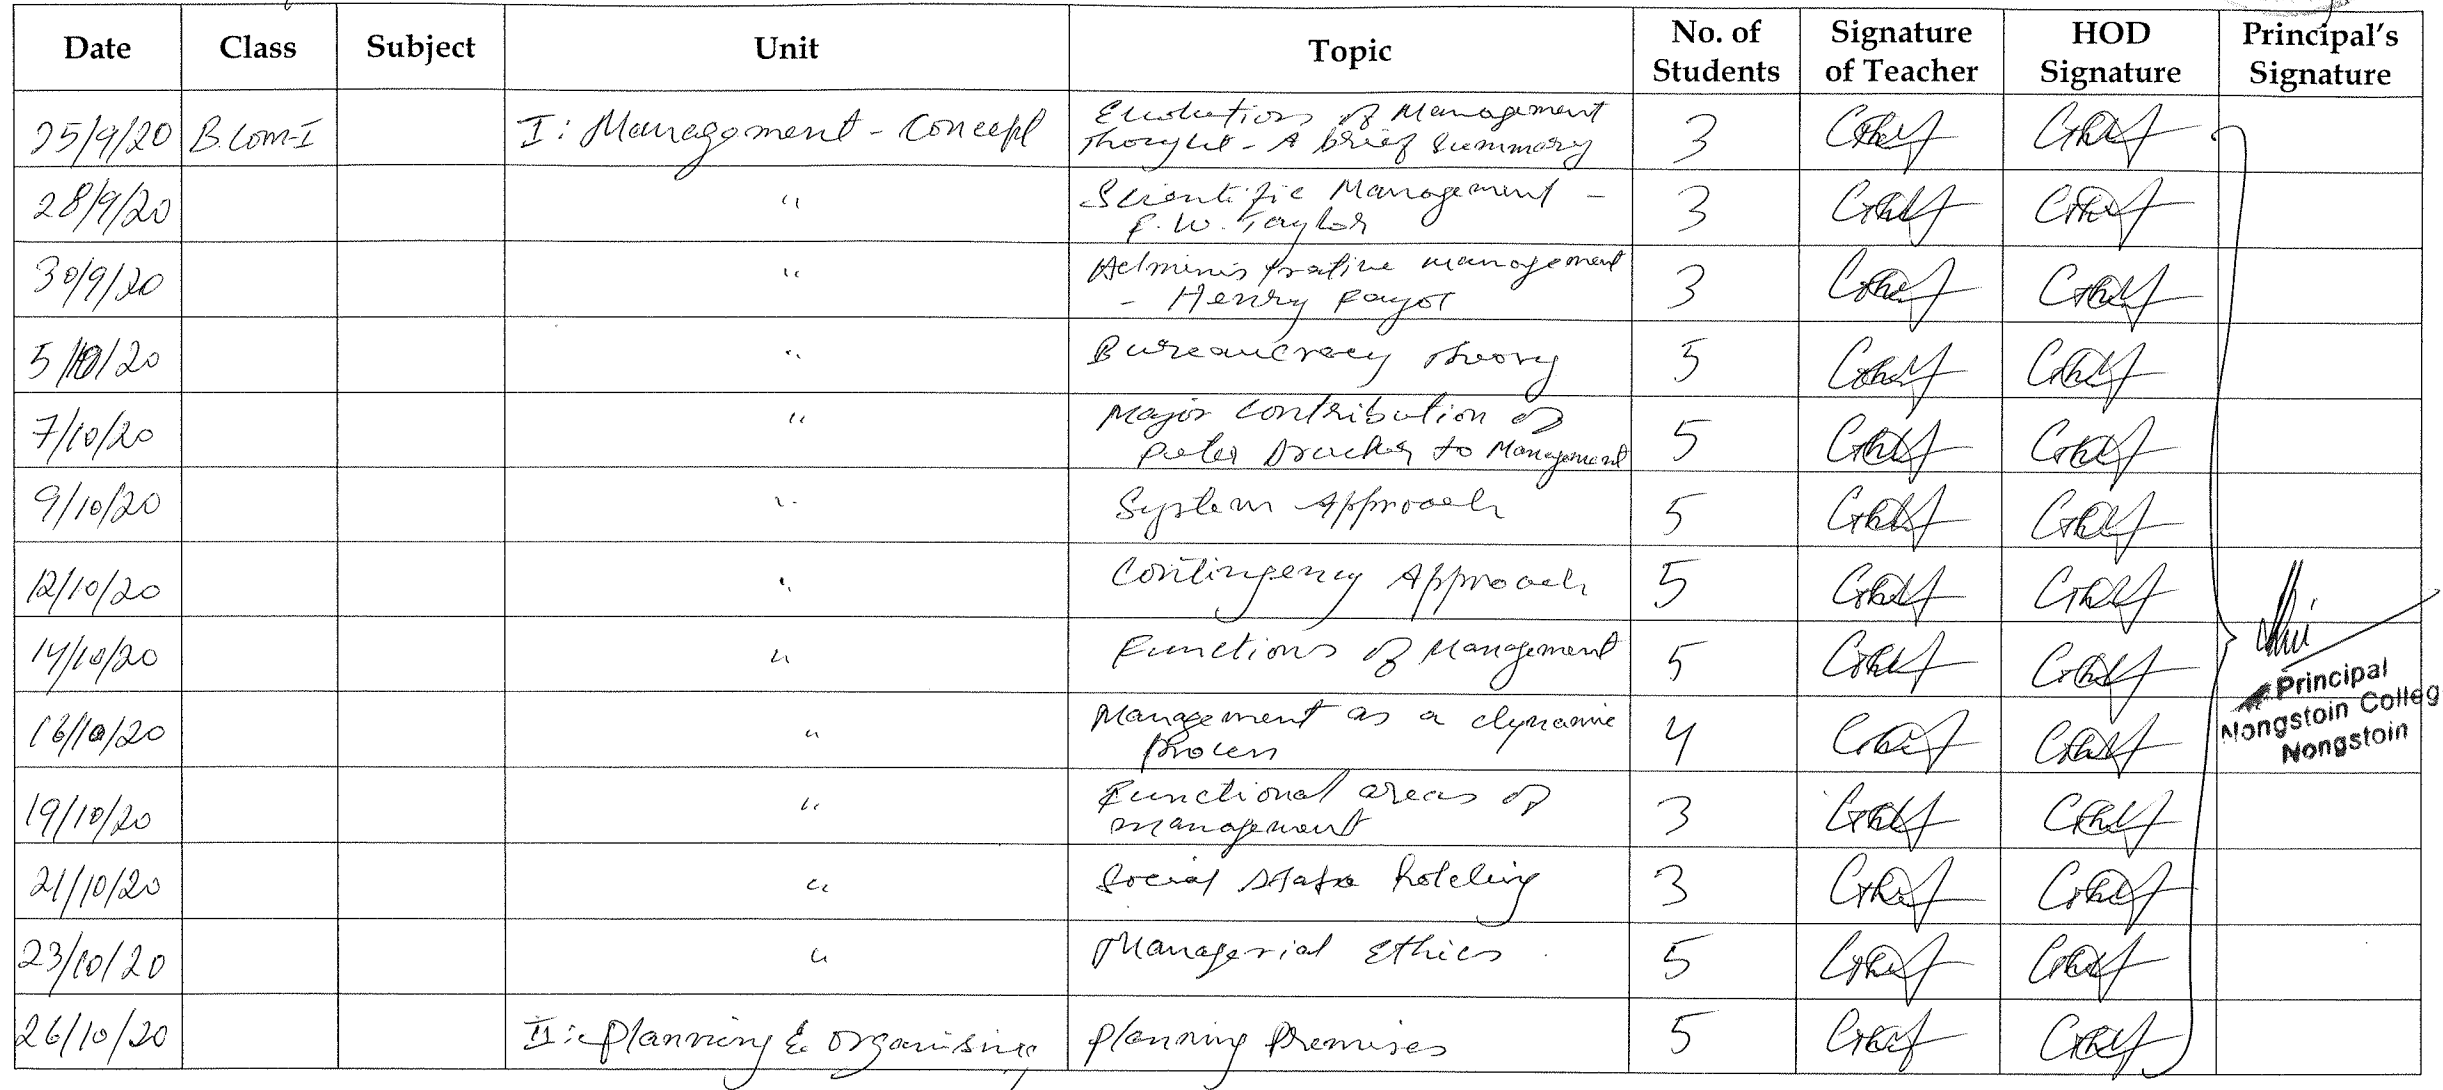 Date Class Subject Unit Topic No. of Students Signature of Teacher HOD Signature Principal's Signature
25/9/20 B.Com-I I: Management - Concept Evolutions of Management Thought - A brief Summary 3
28/9/20 " Scientific Management - F.W. Taylor 3
30/9/20 " Administrative management - Henry Fayol 3
5/10/20 " Bureaucracy Theory 5
7/10/20 " Major Contribution of Peter Drucker to Management 5
9/10/20 " System Approach 5
12/10/20 " Contingency Approach 5
14/10/20 " Functions of Management 5
16/10/20 " Management as a dynamic process 4
19/10/20 " Functional areas of management 3
21/10/20 " Social holding 3
23/10/20 " Managerial Ethics 5
26/10/20 II: Planning & organising Planning Premises 5
Principal
Nongstoin Colleg
Nongstoin